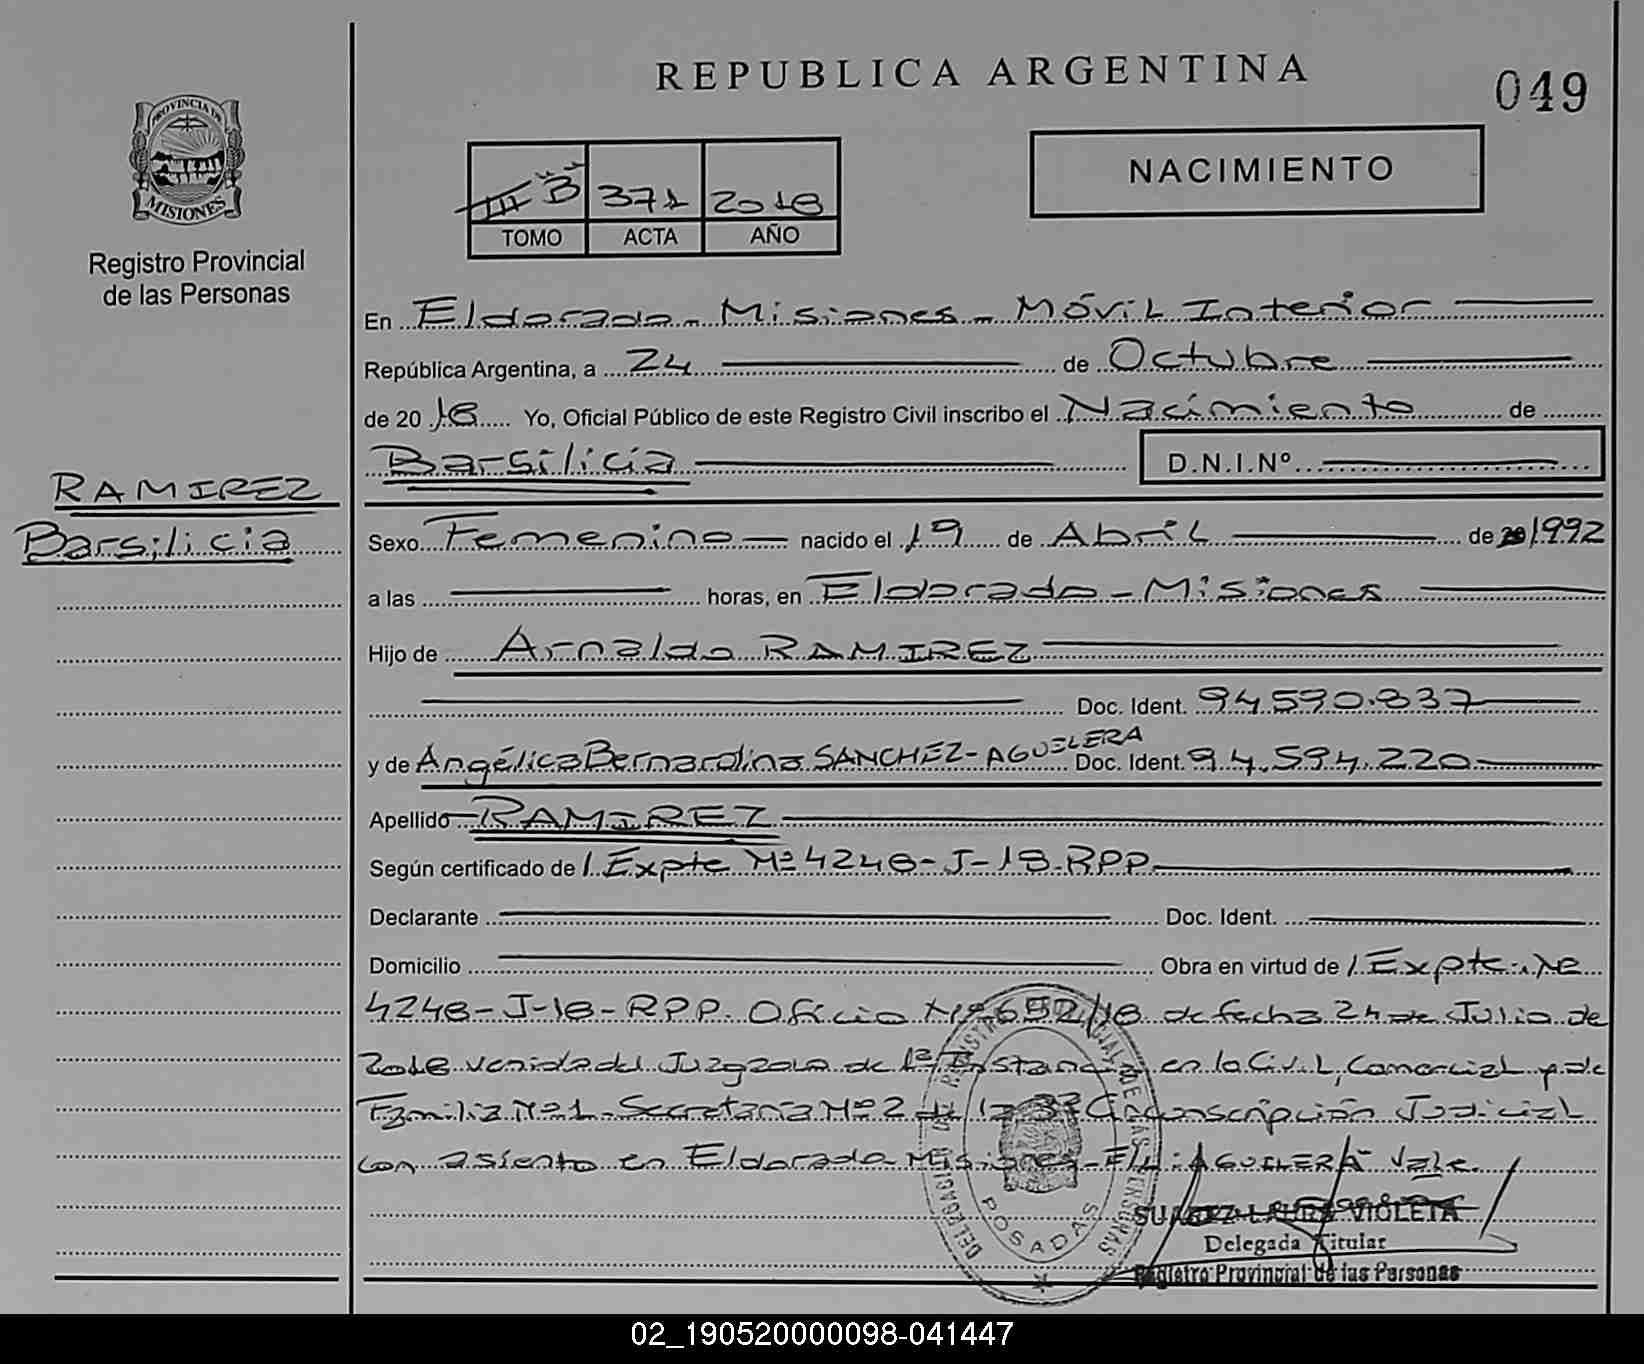 REPUBLICA ARGENTINA
049
PROVINCIA DE
MISIONES
Registro Provincial
de las Personas
III "B" 371 2018
TOMO ACTA AÑO
NACIMIENTO
En Eldorado - Misiones - Móvil Interior
República Argentina, a 24 de Octubre
de 2018 Yo, Oficial Público de este Registro Civil inscribo el Nacimiento de
Barsilicia D.N.I.Nº
RAMIREZ
Barsilicia
Sexo Femenino nacido el 19 de Abril de 1992
a las horas, en Eldorado - Misiones
Hijo de Arnaldo RAMIREZ
Doc. Ident. 94.590.837
y de Angélica Bernardina SANCHEZ - AGUELERA Doc. Ident. 94.594.220
Apellido RAMIREZ
Según certificado de / Expte Nº 4248-J-18-RPP
Declarante Doc. Ident.
Domicilio Obra en virtud de / Expte. Nº
4248-J-18-RPP. Oficio Nº 652/18 de fecha 24 de Julio de
2018 venida del Juzgado de 1ª Instancia en lo Civil, Comercial y de
Familia Nº 1 - Secretaria Nº 2 de la 3ª Circunscripción Judicial
con asiento en Eldorado - Misiones - E/L: AGUILERA Vale.
DELEGACION DEL REGISTRO PROVINCIAL DE LAS PERSONAS
POSADAS
SUAREZ LAURA VIOLETA
Delegada Titular
Registro Provincial de las Personas
02_190520000098-041447